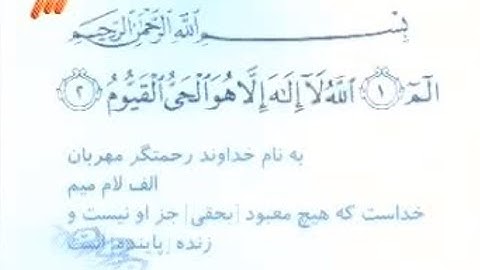 بِسْمِ ٱللَّهِ ٱلرَّحْمَٰنِ ٱلرَّحِيمِ
الٓمٓ ۝١ ٱللَّهُ لَآ إِلَٰهَ إِلَّا هُوَ ٱلْحَىُّ ٱلْقَيُّومُ ۝٢
به نام خداوند رحمتگر مهربان
الف لام میم
خداست که هیچ معبود [بحقی] جز او نیست و
زنده [پاینده] است